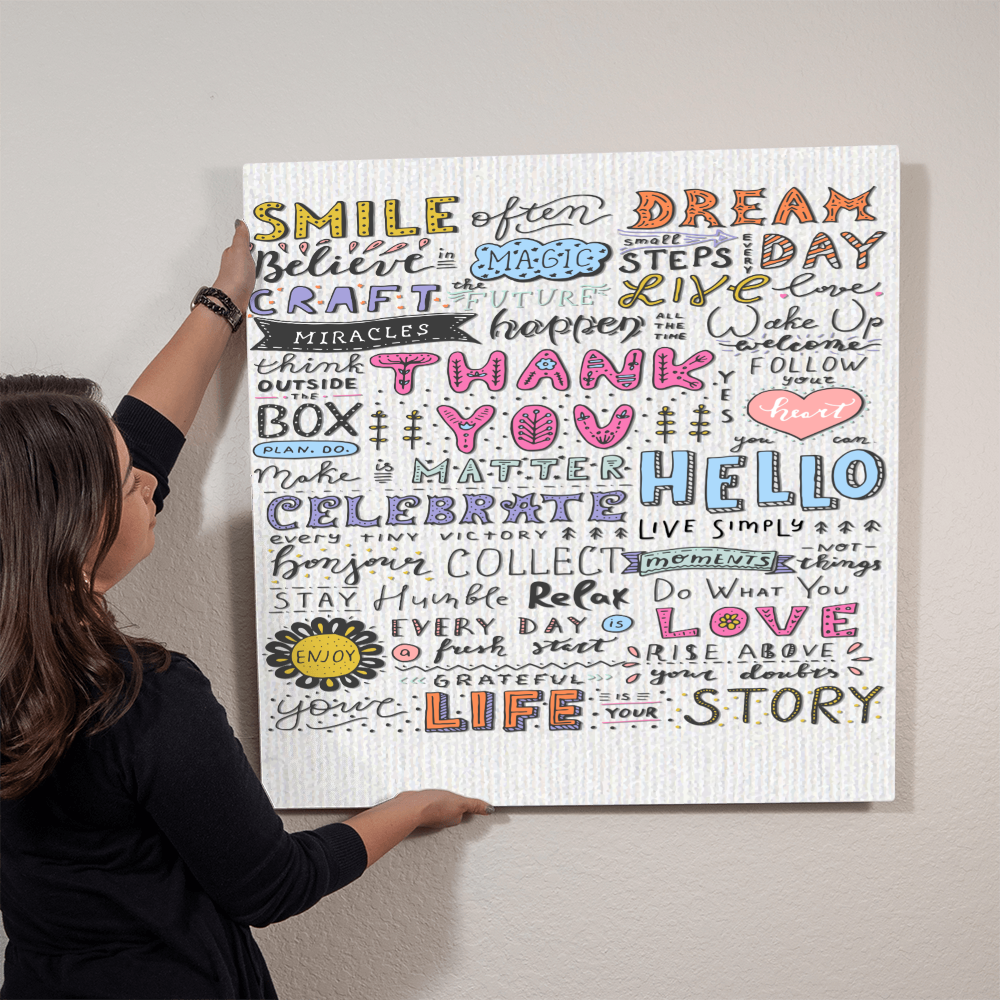 SMILE often DREAM
small STEPS EVERY DAY
Believe in MAGIC
CRAFT the FUTURE LIVE love
MIRACLES happen ALL THE TIME Wake Up
welcome
think OUTSIDE THE BOX
THANK YOU YES
FOLLOW your heart
PLAN. DO.
you can
Make is MATTER HELLO
CELEBRATE
every TINY VICTORY LIVE SIMPLY
bonjour COLLECT MOMENTS -NOT- things
STAY Humble Relax Do What You LOVE
ENJOY EVERY DAY is a fresh start RISE ABOVE
GRATEFUL your doubts
your LIFE IS YOUR STORY